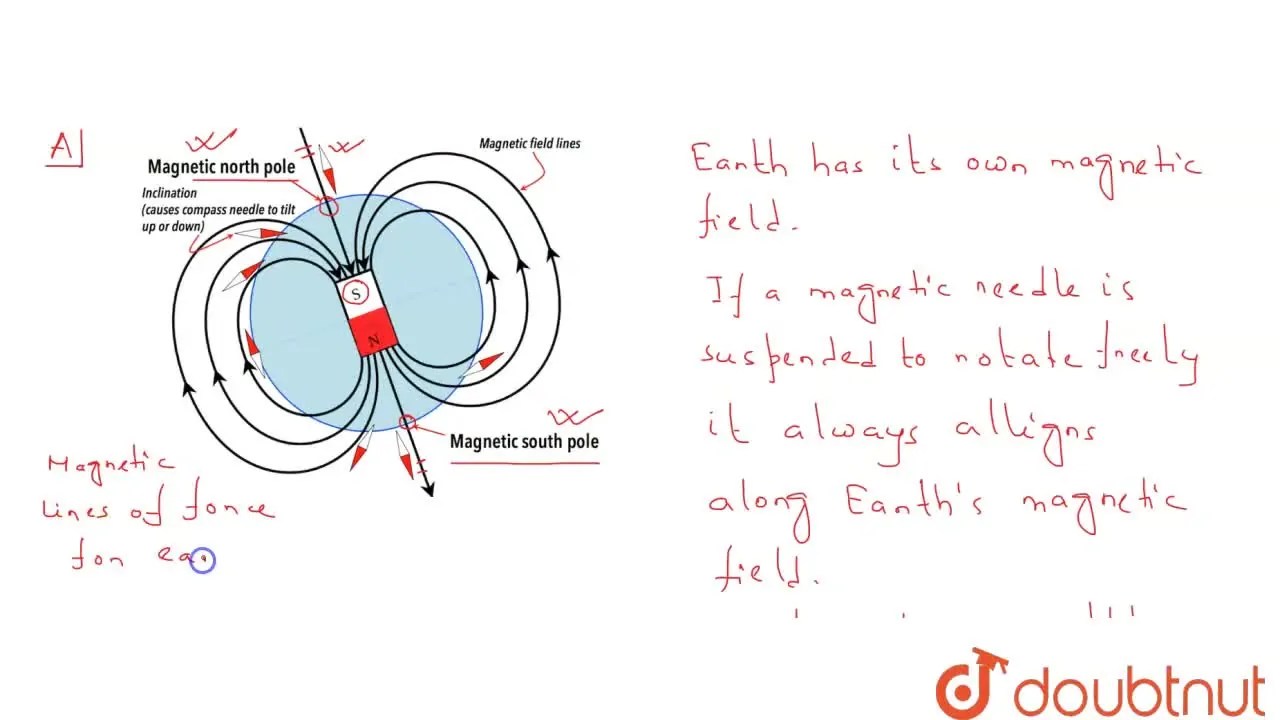 A]
Magnetic north pole
Inclination
(causes compass needle to tilt
up or down)
Magnetic field lines
S
N
Magnetic south pole
Magnetic
Lines of force
for ea
Earth has its own magnetic
field.
If a magnetic needle is
suspended to rotate freely
it always alligns
along Earth's magnetic
field.
doubtnut